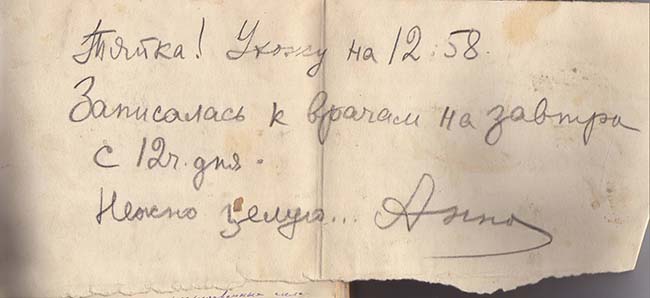 Тятка! Ухожу на 12:58.
Записалась к врачам на завтра
с 12ч. дня.
Нежно целую... Анна